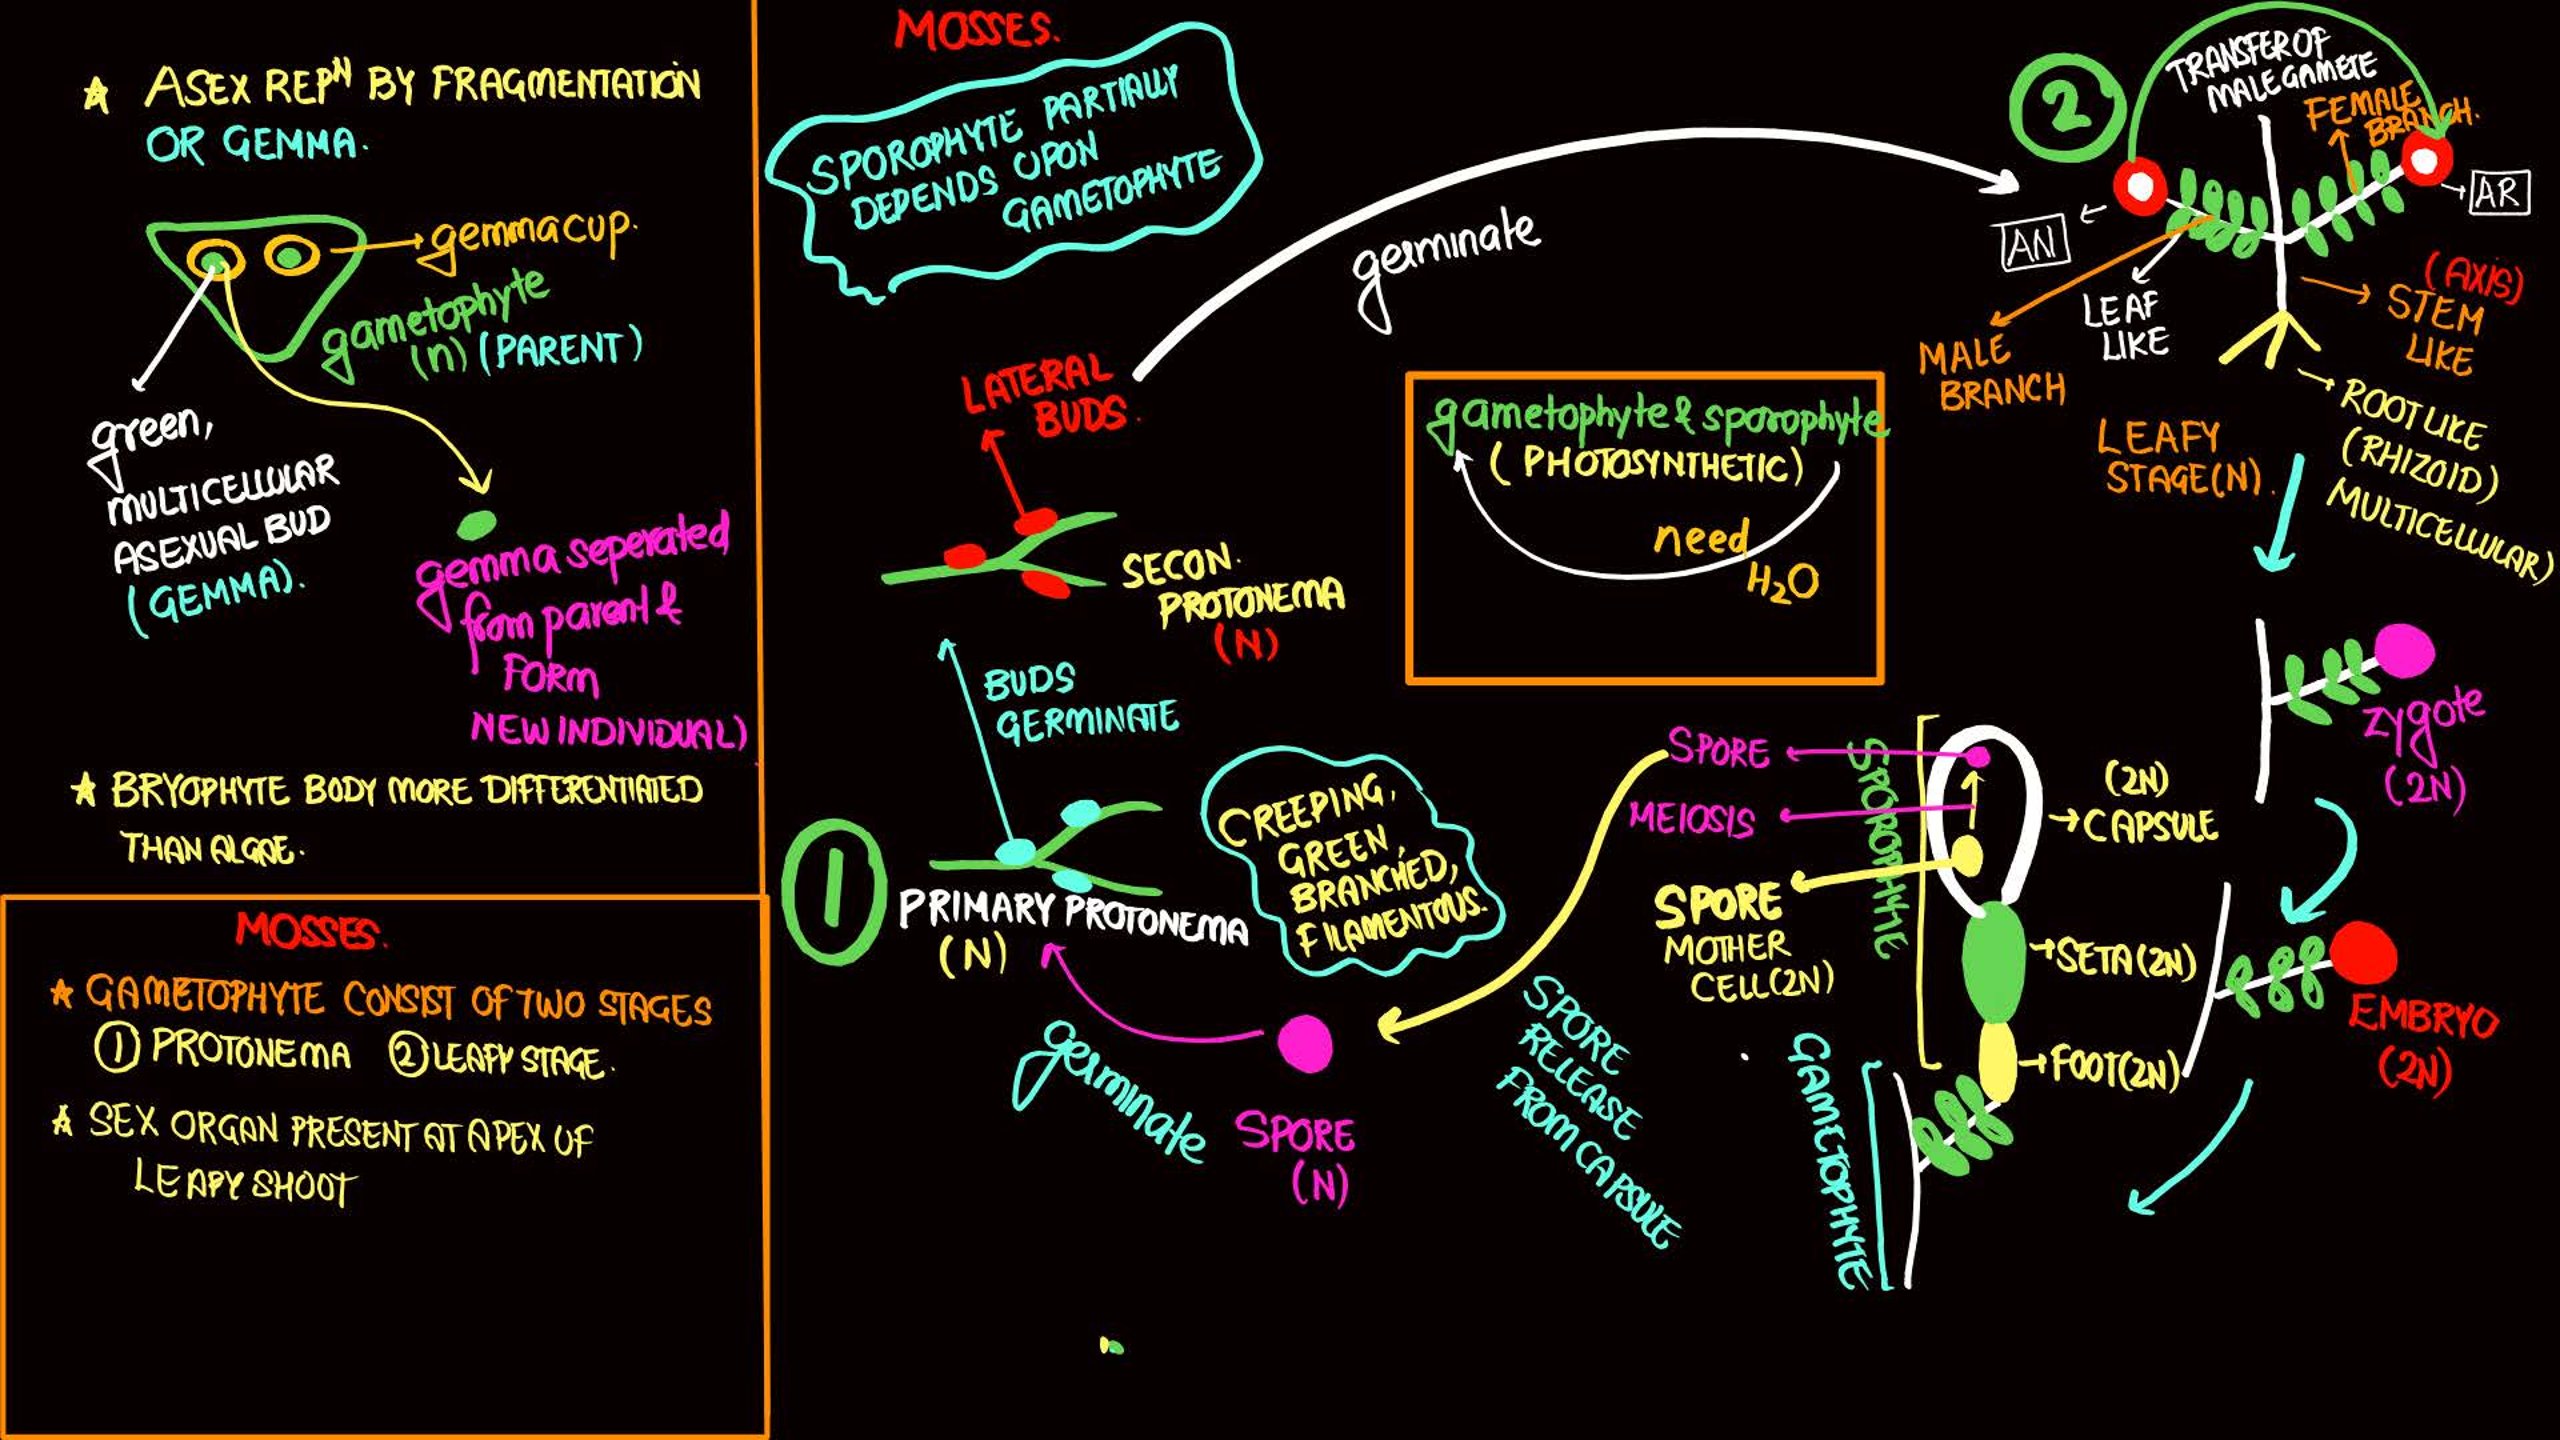 ★ ASEX REPᴺ BY FRAGMENTATION
OR GEMMA.
gemma cup.
gametophyte
(n) (PARENT)
green,
MULTICELLULAR
ASEXUAL BUD
(GEMMA).
gemma seperated
from parent &
FORM
NEW INDIVIDUAL)
★ BRYOPHYTE BODY MORE DIFFERENTIATED
THAN ALGAE.
MOSSES.
★ GAMETOPHYTE CONSIST OF TWO STAGES
① PROTONEMA ② LEAFY STAGE.
★ SEX ORGAN PRESENT AT APEX OF
LEAFY SHOOT
MOSSES.
SPOROPHYTE PARTIALLY
DEPENDS UPON
GAMETOPHYTE
germinate
LATERAL
BUDS.
SECON.
PROTONEMA
(N)
BUDS
GERMINATE
1
PRIMARY PROTONEMA
(N)
CREEPING,
GREEN,
BRANCHED,
FILAMENTOUS.
germinate
SPORE
(N)
gametophyte & sporophyte
(PHOTOSYNTHETIC)
need
H₂O
2
TRANSFER OF
MALE GAMETE
FEMALE
BRANCH.
AR
AN
(AXIS)
STEM
LIKE
LEAF
LIKE
MALE
BRANCH
ROOT LIKE
(RHIZOID)
MULTICELLULAR)
LEAFY
STAGE(N).
zygote
(2N)
EMBRYO
(2N)
SPORE
MEIOSIS
SPORE
MOTHER
CELL(2N)
SPOROPHYTE
(2N)
CAPSULE
SETA(2N)
FOOT(2N)
GAMETOPHYTE
SPORE
RELEASE
FROM CAPSULE